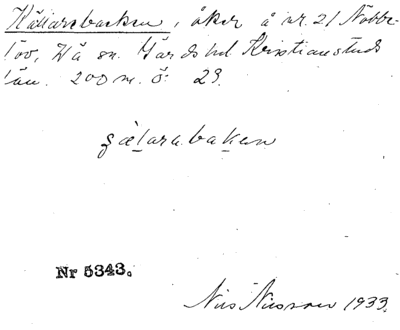 åker å nr. 21 Nöbbe-
löv, Vä sn. Gärds hd Kristianstads
län. 200 m. ö. 29.
gælarabakan
Nr 5343.
Nils Nilsson 1933.